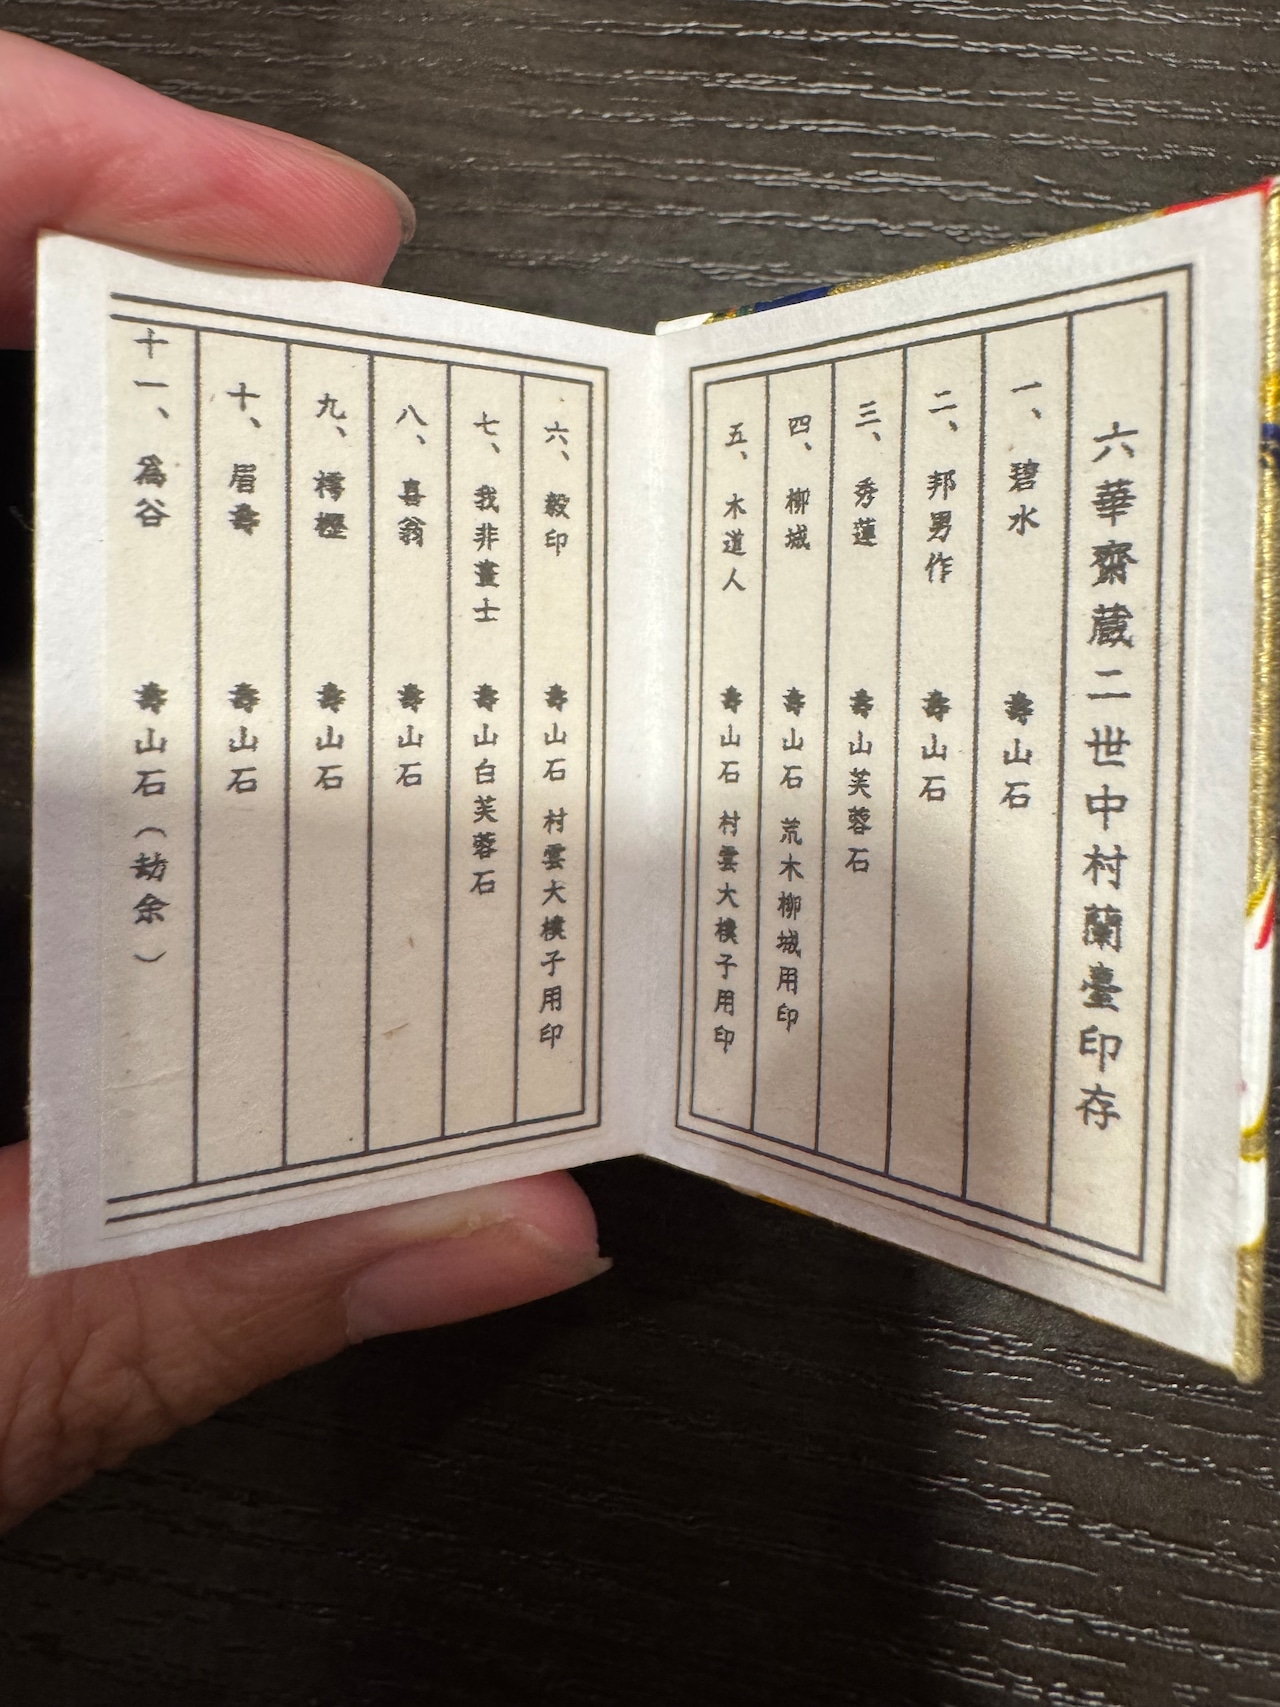 六華齋蔵二世中村蘭臺印存
一、碧水 壽山石
二、邦男作 壽山石
三、秀蓮 壽山芙蓉石
四、柳城 壽山石 荒木柳城用印
五、木道人 壽山石 村雲大樸子用印
六、毅印 壽山石 村雲大樸子用印
七、我非畫士 壽山白芙蓉石
八、喜翁 壽山石
九、樗櫟 壽山石
十、眉壽 壽山石
十一、爲谷 壽山石（劫余）